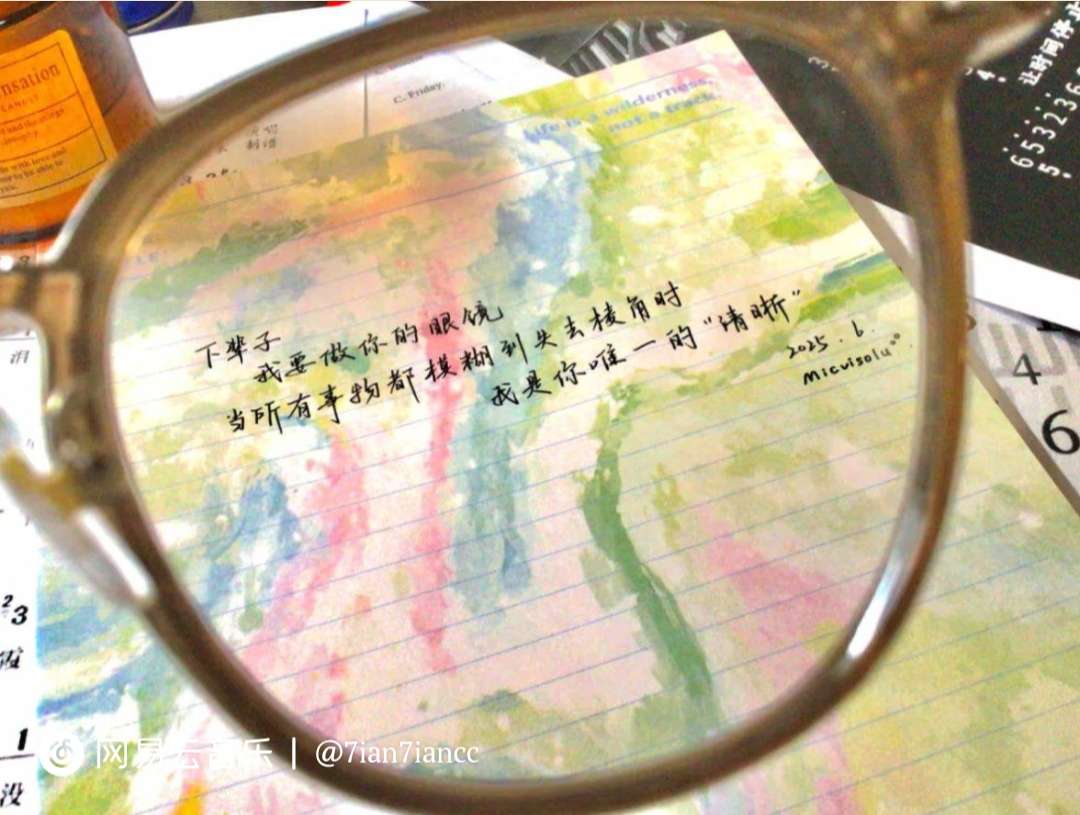 nsation
C. Friday.
Life is a wilderness,
not a track.
让时间停止
653236
5
下辈子
我要做你的眼镜
当所有事物都模糊到失去棱角时
我是你唯一的“清晰”
2025.6.
Micvisolu
4
6
23
1
没
网易云音乐 | @7ian7iancc